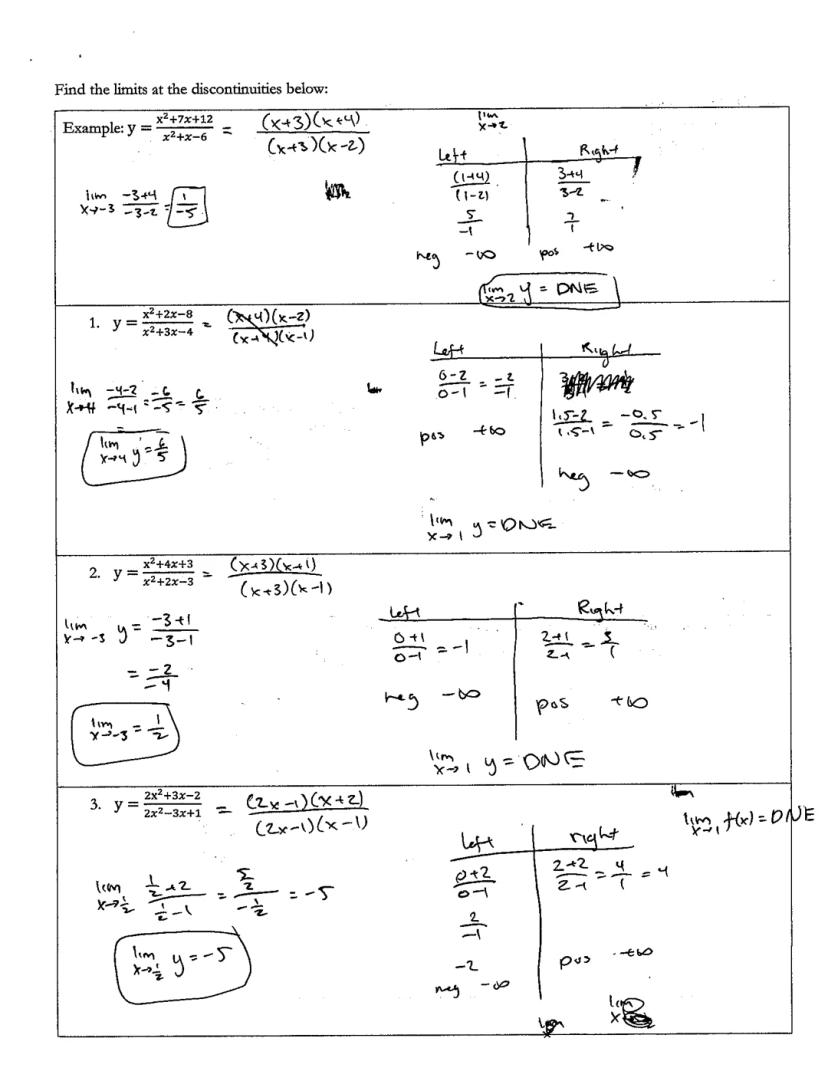 Find the limits at the discontinuities below:
Example: y = (x²+7x+12)/(x²+x−6) = (x+3)(x+4)/(x+3)(x−2)
lim x→-3 (-3+4)/(-3-2) = 1/-5
lim x→2
Left Right
(1+4)/(1-2) (3+4)/(3-2)
5/-1 7/1
neg -∞ pos +∞
lim x→2 y = DNE
1. y = (x²+2x−8)/(x²+3x−4) = (x+4)(x-2)/(x+4)(x-1)
lim x→4 (-4-2)/(-4-1) = -6/-5 = 6/5
lim x→4 y = 6/5
Left Right
(0-2)/(0-1) = -2/-1 (1.5-2)/(1.5-1) = -0.5/0.5 = -1
pos +∞ neg -∞
lim x→1 y = DNE
2. y = (x²+4x+3)/(x²+2x−3) = (x+3)(x+1)/(x+3)(x-1)
lim x→-3 y = (-3+1)/(-3-1)
= -2/-4
lim x→-3 = 1/2
Left Right
(0+1)/(0-1) = -1 (2+1)/(2-1) = 3/1
neg -∞ pos +∞
lim x→1 y = DNE
3. y = (2x²+3x−2)/(2x²−3x+1) = (2x-1)(x+2)/(2x-1)(x-1)
lim x→1/2 (1/2+2)/(1/2-1) = (5/2)/(-1/2) = -5
lim x→1/2 y = -5
left right
(0+2)/(0-1) (2+2)/(2-1) = 4/1 = 4
2/-1
-2
neg -∞ pos +∞
lim x→1 f(x) = DNE